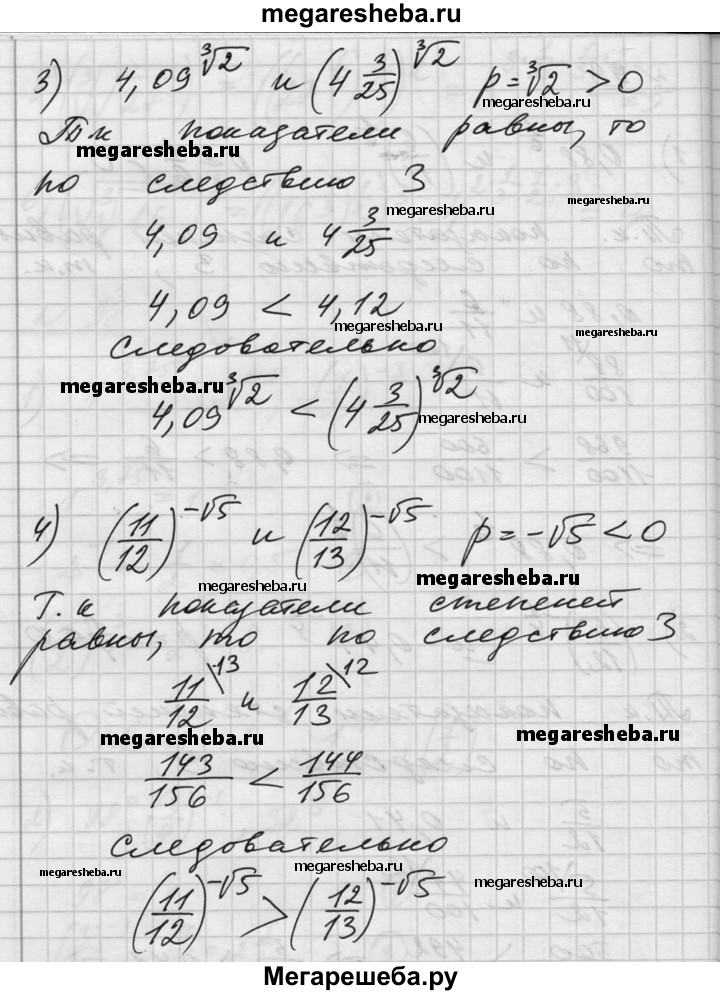 megaresheba.ru
3) 4,09^∛2 и (4 3/25)^∛2 p = ∛2 > 0
megaresheba.ru
Т.к показатели равны, то
megaresheba.ru
по следствию 3
megaresheba.ru megaresheba.ru
4,09 и 4 3/25
4,09 < 4,12
megaresheba.ru megaresheba.ru
Следовательно
megaresheba.ru
4,09^∛2 < (4 3/25)^∛2
megaresheba.ru
4) (11/12)^−√5 и (12/13)^−√5 p = −√5 < 0
megaresheba.ru megaresheba.ru
Т.к показатели степеней
равны, то по следствию 3
megaresheba.ru
11/12 \13 и 12/13 \12
megaresheba.ru megaresheba.ru
143/156 < 144/156
Следовательно
megaresheba.ru megaresheba.ru megaresheba.ru
(11/12)^−√5 > (12/13)^−√5
Мегарешеба.ру